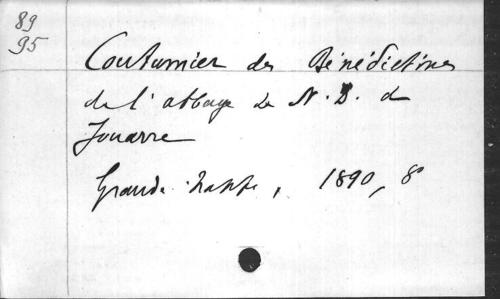 89
95
Coutumier des Bénédictines
de l'abbaye de N. D. de
Jouarre
Grande Trappe, 1890, 8°